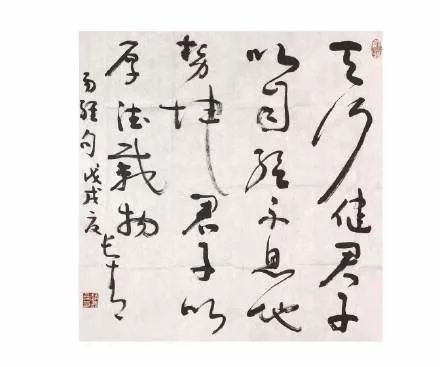 天行健君子
以自強不息地
勢坤君子以
厚德載物
易經句戊戌夏